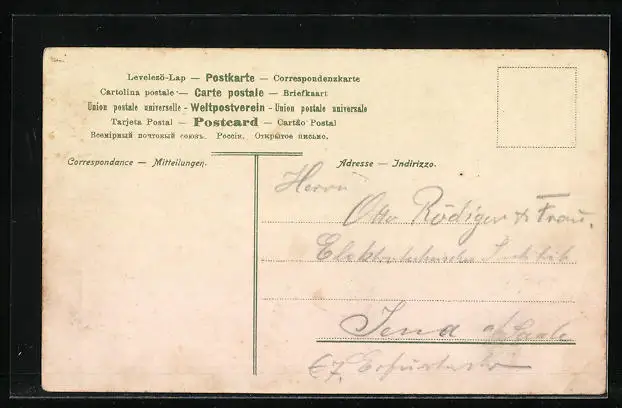 Levelezö-Lap — Postkarte — Correspondenzkarte
Cartolina postale — Carte postale — Briefkaart
Union postale universelle - Weltpostverein - Union postale universale
Tarjeta Postal — Postcard — Cartão Postal
Всемірный почтовый союзъ. Россія. Открытое письмо.
Correspondance — Mitteilungen.
Adresse — Indirizzo.
Herrn
Otto Rödiger & Frau.
Elektrotechnisches Institut
Jena a/Saale
Erfurterstr